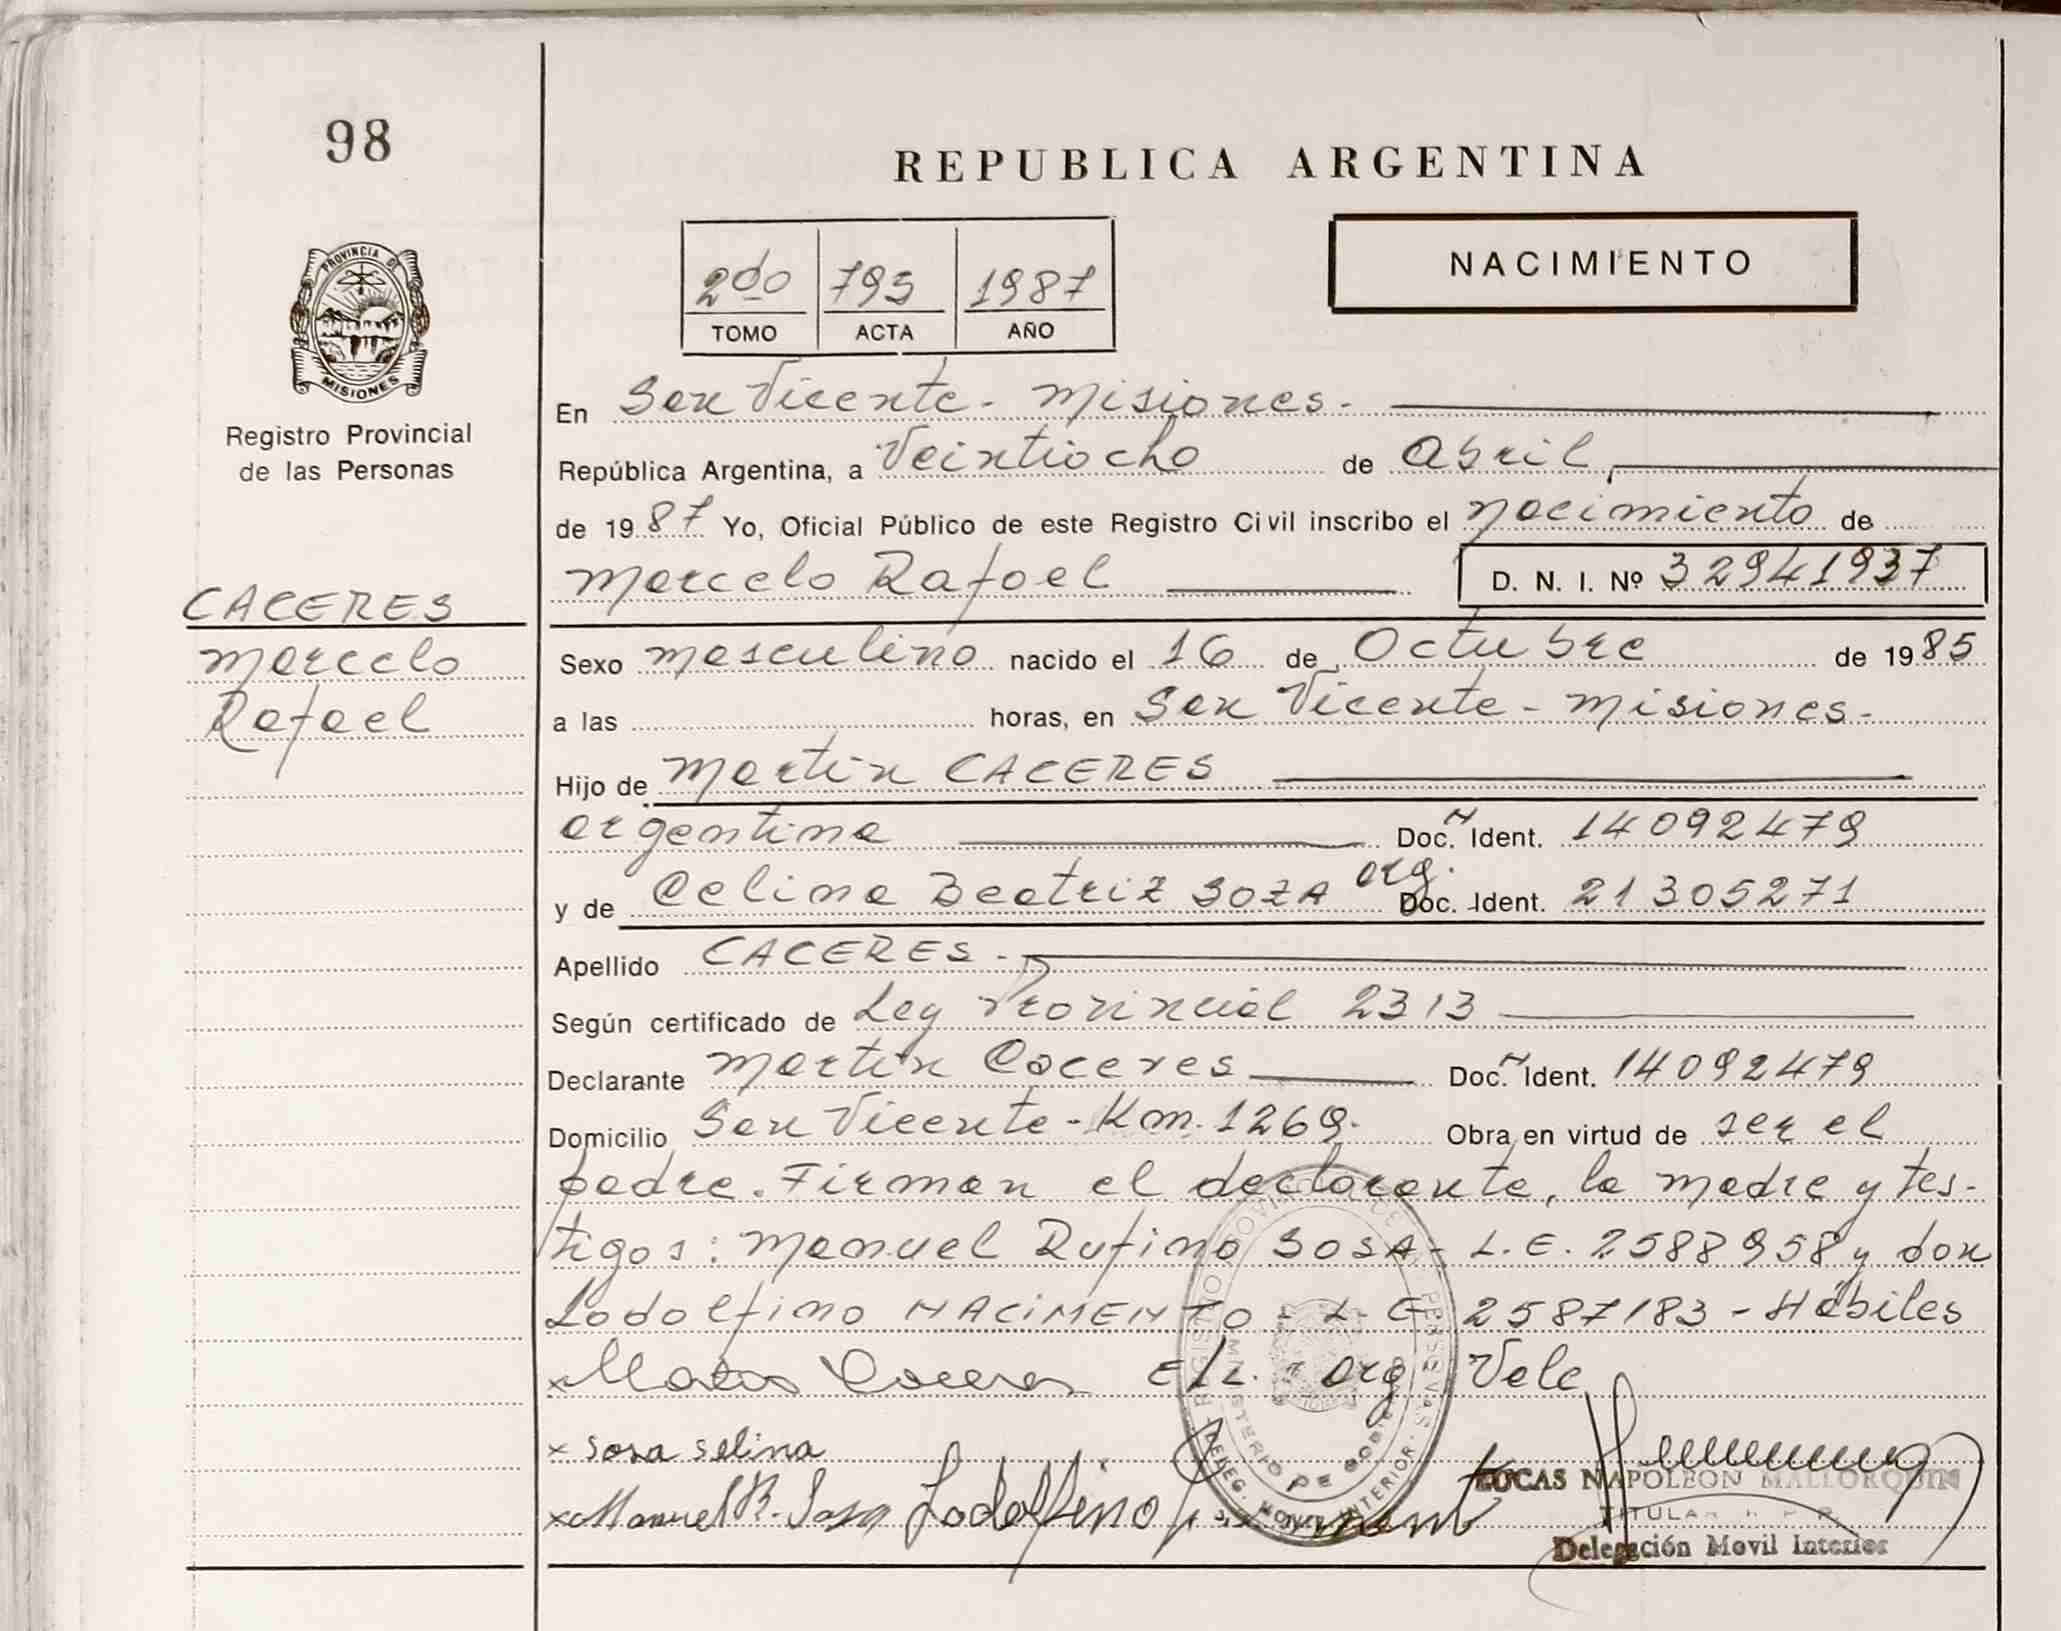 98
REPUBLICA ARGENTINA
PROVINCIA DE
MISIONES
Registro Provincial
de las Personas
2do 793 1987
TOMO ACTA AÑO
NACIMIENTO
En San Vicente - Misiones -
República Argentina, a Veintiocho de Abril,
de 1987 Yo, Oficial Público de este Registro Civil inscribo el nacimiento de
Marcelo Rafael D. N. I. Nº 32941937
CACERES
Marcelo
Rafael
Sexo masculino nacido el 16 de Octubre de 1985
a las horas, en San Vicente - Misiones -
Hijo de Martin CACERES
argentina Doc. N Ident. 14092479
y de Celina Beatriz SOZA arg. Doc. Ident. 21305271
Apellido CACERES -
Según certificado de Ley Provincial 2313
Declarante Martin Caceres Doc. N Ident. 14092479
Domicilio San Vicente - Km. 1269. Obra en virtud de ser el
padre. Firman el declarante, la madre y tes-
tigos: Manuel Rufino SOSA - L.E. 2588958 y don
Lodolfino NACIMENTO - L E 2587183 - Hábiles
x Caceres E/L. arg Vale
x Sosa Selina
x Manuel R. Sosa Lodolfino
LUCAS NAPOLEON MALLORQUIN
TITULAR R P P
Delegación Movil Interior